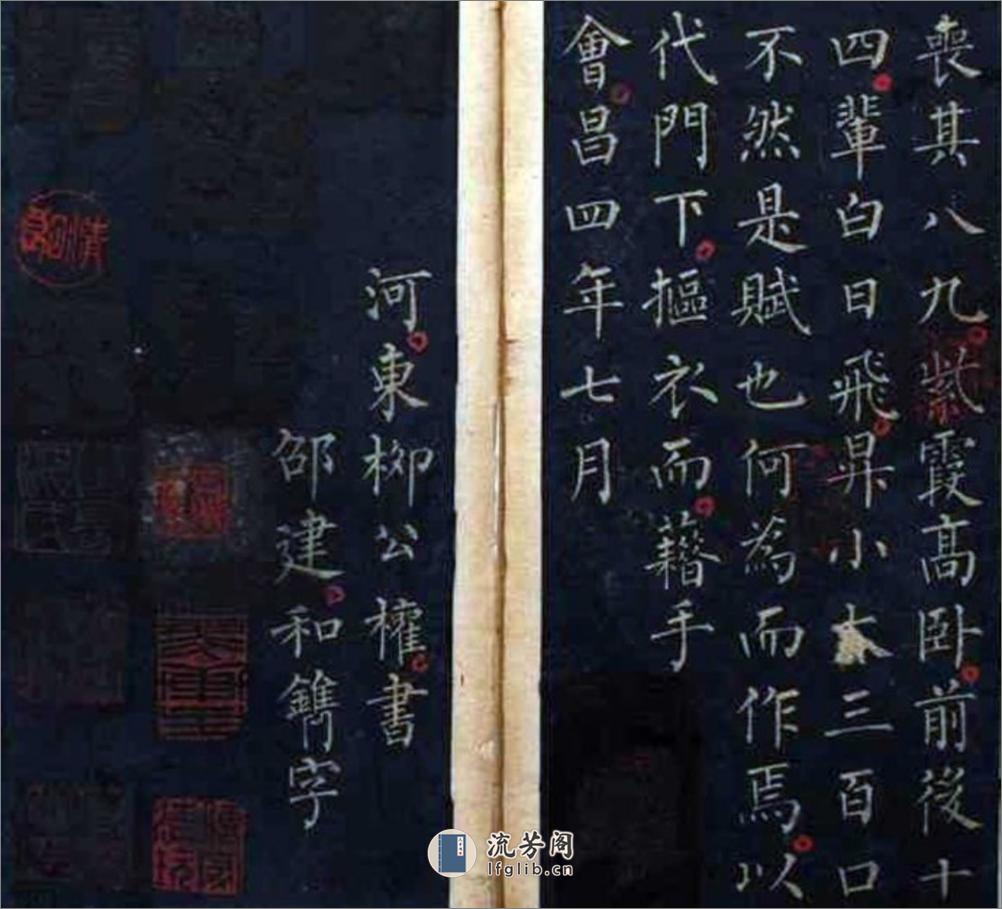 喪其八九紫霞高卧前後十
四輩白日飛昇小大三百口
不然是賦也何為而作焉以
代門下摳衣而藉手
會昌四年七月
河東柳公權書
邵建和鐫字
流芳阁
lfglib.cn